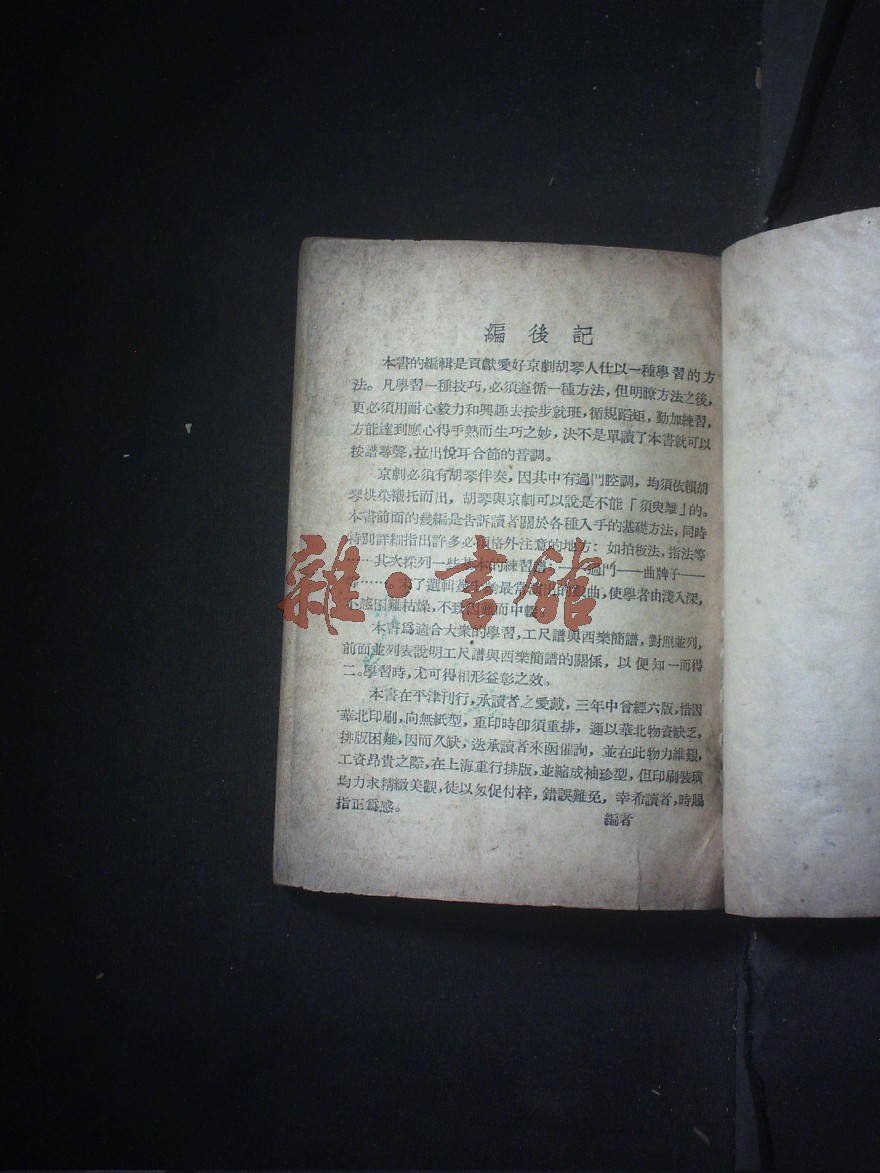 編後記
本書的編輯是貢獻愛好京劇胡琴人仕以一種學習的方
法。凡學習一種技巧，必須遵循一種方法，但明瞭方法之後，
更必須用耐心毅力和興趣去按步就班，循規蹈矩，勤加練習，
方能達到應心得手熟而生巧之妙，決不是單讀了本書就可以
按譜尋聲，拉出悅耳合節的音調。
京劇必須有胡琴伴奏，因其中有過門腔調，均須依賴胡
琴烘染襯托而出，胡琴與京劇可以說是不能「須臾離」的。
本書前面的幾編是告訴讀者關於各種入手的基礎方法，同時
特別詳細指出許多必須格外注意的地方：如拍板法，指法等
……其次採列一些基本的練習 過門——曲牌子——
等……。末了選輯 最常 曲，使學者由淺入深，
不感困難枯燥，不致因難而中輟。
本書爲適合大衆的學習，工尺譜與西樂簡譜，對照並列，
前面並列表說明工尺譜與西樂簡譜的關係，以便知一而得
二。學習時，尤可得相形益彰之效。
本書在平津刊行，承讀者之愛戴，三年中曾經六版，惜因
華北印刷，向無紙型，重印時卽須重排，邇以華北物資缺乏，
排版困難，因而久缺，迭承讀者來函催詢，並在此物力維艱，
工資昂貴之際，在上海重行排版，並縮成袖珍型，但印刷裝璜
均力求精緻美觀，徒以匆促付梓，錯誤難免，幸希讀者，時賜
指正爲感。
編者
雜·書館